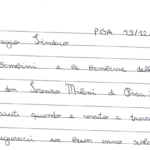 PISA 19/12
Sindaco
bambini e le bambine dell
don Lorenzo Milani di Pisa
quando è venuto a trova
un buon anno scola